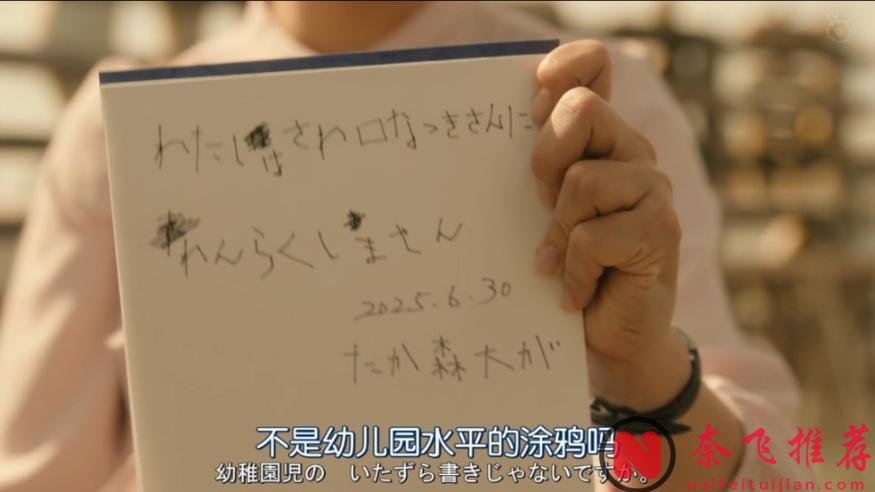 わたしはさわ口なつきさんに
れんらくしません
2025.6.30
たか森大が
不是幼儿园水平的涂鸦吗
幼稚園児の いたずら書きじゃないですか。
奈飞推荐
naifeituijian.com